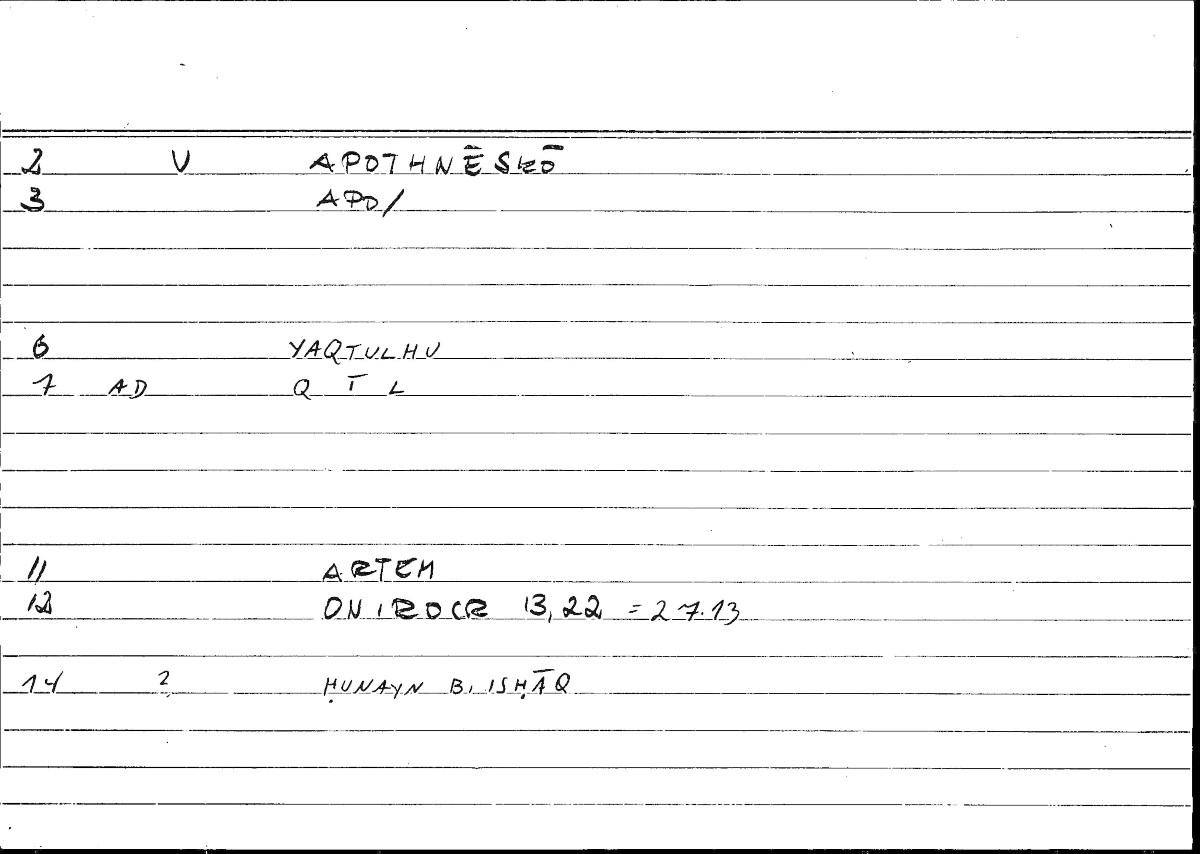 2 V APOTHNĒSKŌ
3 APO/
6 YAQTULHU
7 AD Q T L
11 ARTEM
12 ONIROCR 13,22 = 27.13
14 2 ḤUNAYN B. ISḤĀQ